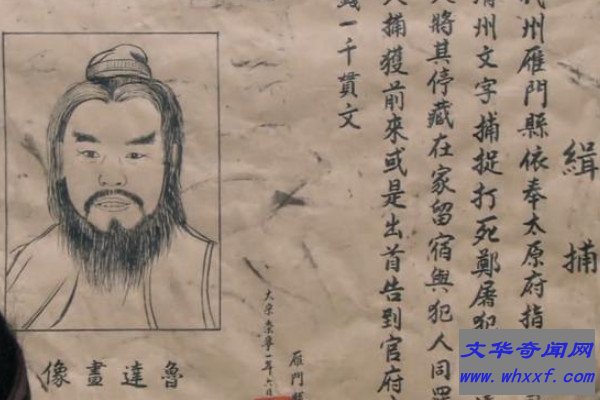 緝捕
州雁門縣依奉太原府指
州文字捕捉打死鄭屠犯
將其停藏在家留宿與犯人同
捕獲前來或是出首告到官府
一千貫文
雁門
大宋崇寧一年六月
魯達畫像
文华奇闻网
www.whxxf.com